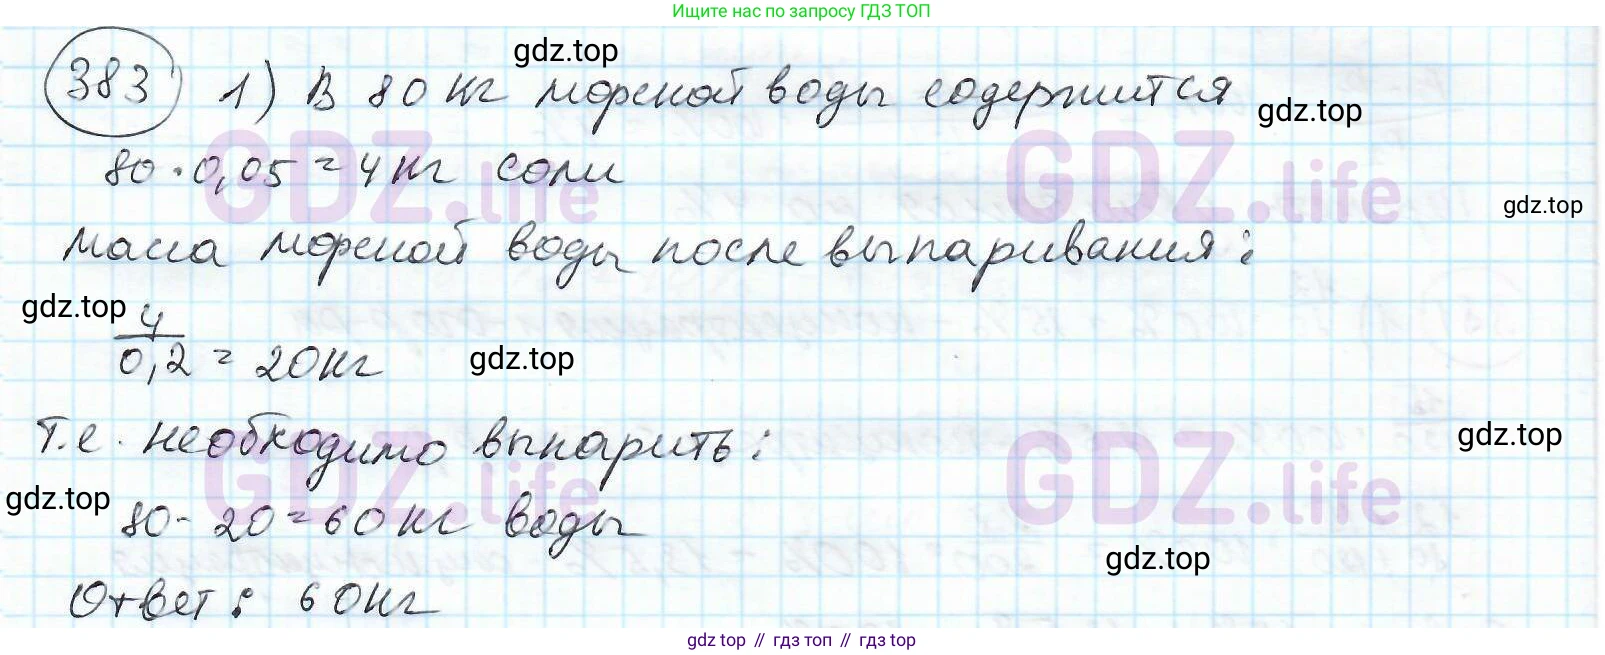 Ищите нас по запросу ГДЗ ТОП
gdz.top
383 1) В 80 кг морской воды содержится
gdz.top
80 · 0,05 = 4 кг соли
GDZ.life GDZ.life
gdz.top
масса морской воды после выпаривания:
gdz.top
4/0,2 = 20 кг
gdz.top
т.е. необходимо выпарить:
gdz.top
GDZ.life GDZ.life
gdz.top
80 - 20 = 60 кг воды
gdz.top
Ответ: 60 кг
gdz.top // гдз топ // гдз top